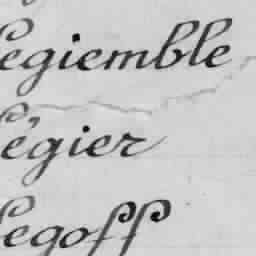 Legiemble
Légier
Legoff